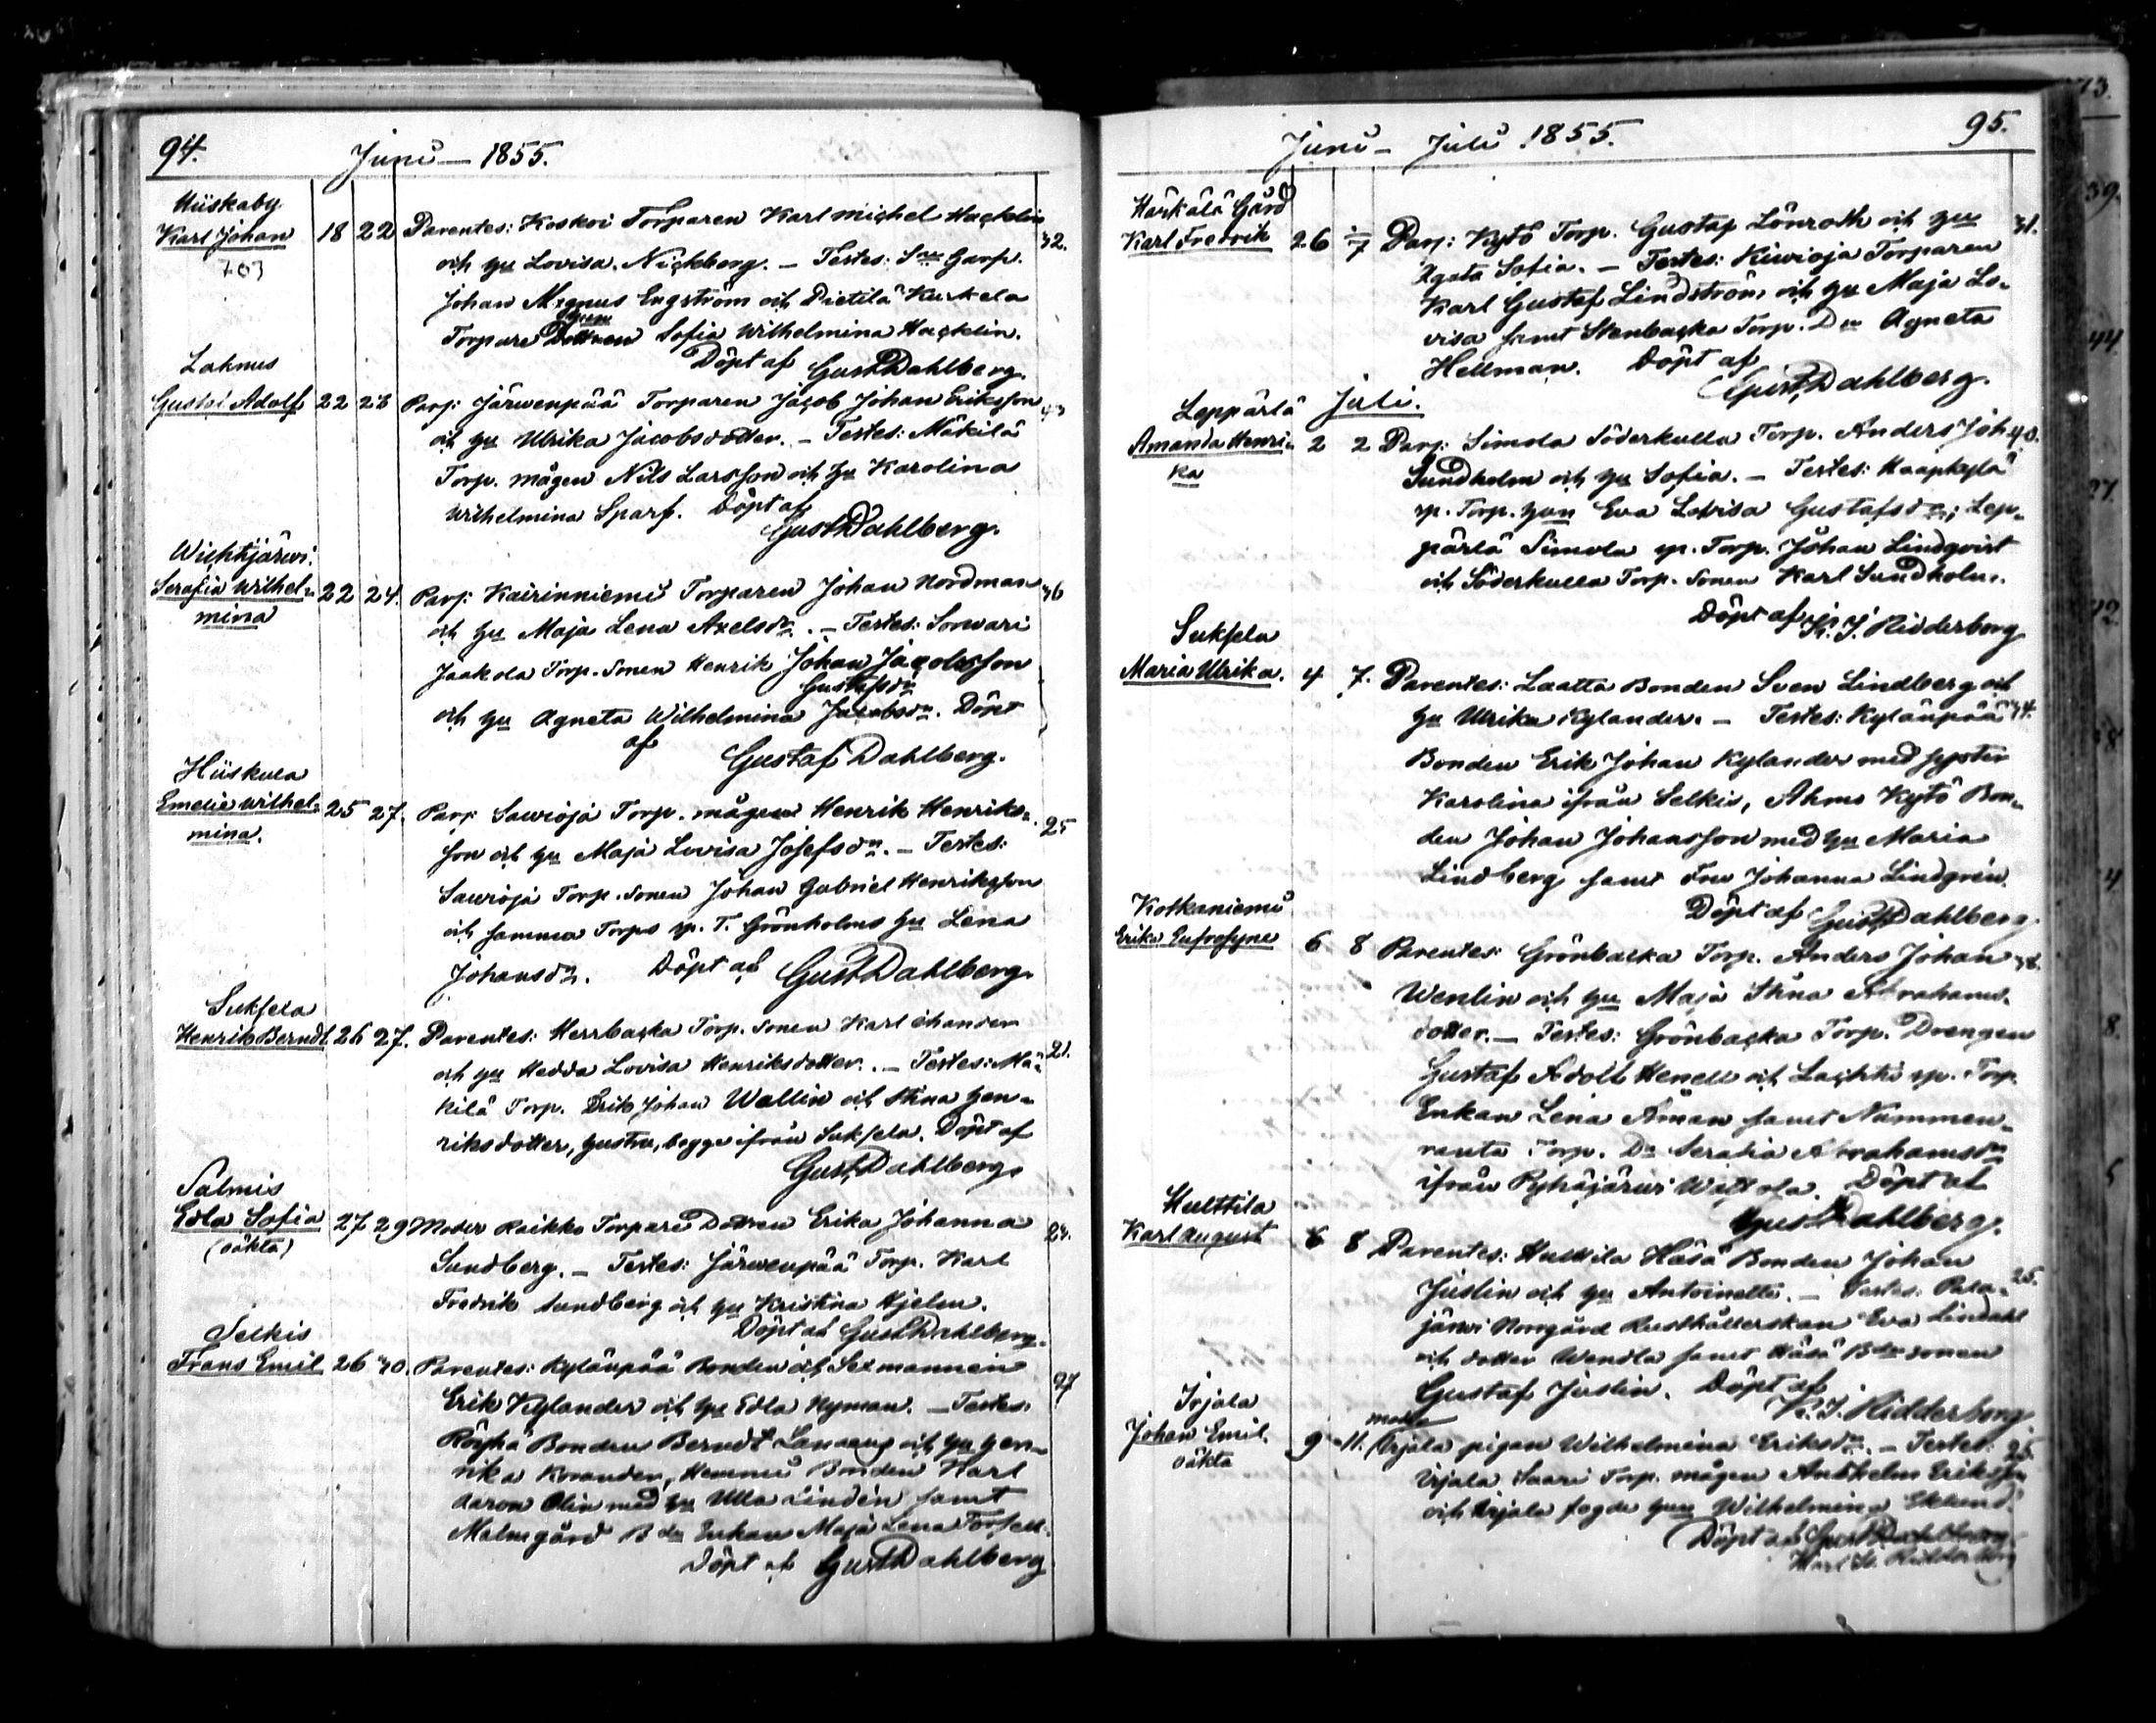 94.
Juni — 1855.
Hiiskaby
Karl Johan 18 22 Parentes: Koskoi Torparen Karl Michel Hacklin 32.
703
och hu Lovisa Nickberg. — Testes: Garf.
Johan Magnus Engström och Pietilä Kurkela
Torpare Dottren Sofia Wilhelmina Hacklin.
Döpt af Gust Dahlberg.
Lahnus
Gustaf Adolf 22 28 Par: Järwenpää Torparen Jacob Johan Eriksson 43
och hu Ulrika Jacobsdotter. — Testes: Mäkilä
Torp. mågen Nils Larsson och hu Karolina
Wilhelmina Sparf. Döpt af
Gust Dahlberg.
Wichtijärwi.
Serafia Wilhel- 22 24. Par: Kairinniemi Torparen Johan Nordman 36
mina
och hu Maja Lena Axelsdr. — Testes: Sorwari
Jaakola Torp. Sonen Henrik Johan Jacobsson
Gustafsdr
och hu Agneta Wilhelmina Jacobsdr. Döpt
af Gustaf Dahlberg.
Hiiskula
Emelie Wilhel- 25 27. Par: Sawioja Torp. mågen Henrik Henriks- 25
mina.
son och hu Maja Lovisa Josefsdr. — Testes:
Sawioja Torp. Sonen Johan Gabriel Henriksson
och samma Torps sp. T. Grönholms hu Lena
Johansdr. Döpt af Gust Dahlberg.
Suksela
Henrik Berndt 26 27. Parentes: Herrbacka Torp. Sonen Karl 21.
och hu Hedda Lovisa Henriksdotter. — Testes: Mä-
kilä Torp. Erik Johan Wallin och Stina Hen-
riksdotter, hustru, begge ifrån Suksela. Döpt af
Gust Dahlberg
Salmis
Edla Sofia 27 29 Moder Raikko Torpare Dottren Erika Johanna 24.
(oäkta)
Sundberg. — Testes: Järwenpää Torp. Karl
Fredrik Sundberg och hu Kristina Hjelm.
Döpt af Gust Dahlberg.
Selkis
Frans Emil 26 30. Parentes: Kylänpää Bonden och Sexmannen 27
Erik Kylander och hu Edla Nyman. — Testes:
Röyhä Bonden Berndt och hu Hen-
rika Hemmi Bonden Karl
Aaron Olin med hu Ulla Lindén samt
Malmgård Enkan Maja Lena Forsell.
Döpt af Gust Dahlberg
Juni — Juli 1855. 95.
Härkälä Gård
Karl Fredrik 26 1/7 Par: Kytö Torp. Gustaf Lönroth och hu 31.
Agata Sofia. — Testes: Kiwioja Torparen
Karl Gustaf Lindström och hu Maja Lo-
visa samt Stenbacka Torp. Dn Agneta
Hellman. Döpt af
Gust Dahlberg.
Juli.
Leppärlä
Amanda Henri- 2 2 Par: Simola Söderkulla Torp. Anders Joh. 40.
ka
Sundholm och hu Sofia. — Testes: Haapkylä
sp. Torp. hun Eva Lovisa Gustafsdr; Lep-
pärlä Simola sp. Torp. Johan Lindqvist
och Söderkulla Torp. Sonen Karl Sundholm.
Döpt af K. J. Ridderborg
Suksela
Maria Ulrika. 4 7. Parentes: Laatta Bonden Sven Lindberg och
hu Ulrika Kylander. — Testes: Kyläupää 34.
Bonden Erik Johan Kylander med syster
Karolina ifrån Selkis, Ahmo Kytö Bon-
den Johan Johansson med hu Maria
Lindberg samt Fru Johanna Lindgrén.
Döpt af Gust Dahlberg
Kotkaniemi
Erika Eufrosyne 6 8 Parentes: Grönbacka Torp. Anders Johan 38.
Wenlin och hu Maja Stina Abrahams-
dotter. — Testes: Grönbacka Torp. Drengen
Gustaf Adolf Henell och Lachti sp. Torp.
Enkan Lena Åman samt Nummen-
ranta Torp. Dr Serafia Abrahamsdr
ifrån Pyhäjärwi Döpt af
Gust Dahlberg.
Hulttila
Karl August 6 8 Parentes: Hulttila Häsä Bonden Johan
Juslin och hu Antoinette. — Testes: Pala- 25.
järwi Norrgård Rusthållerskan Eva Lindahl
och dotter Wendla samt Häsä Bdesonen
Gustaf Juslin. Döpt af
K. J. Ridderborg
Irjala
Johan Emil. 9 11. Moder Irjala pigan Wilhelmina Eriksdr. — Testes: 25.
oäkta
Irjala Saari Torp. mågen Anthelm Eriksson
och Irjala fogde hun Wilhelmina Eklund.
Döpt af Gust Dahlberg
Karl J. Ridderborg